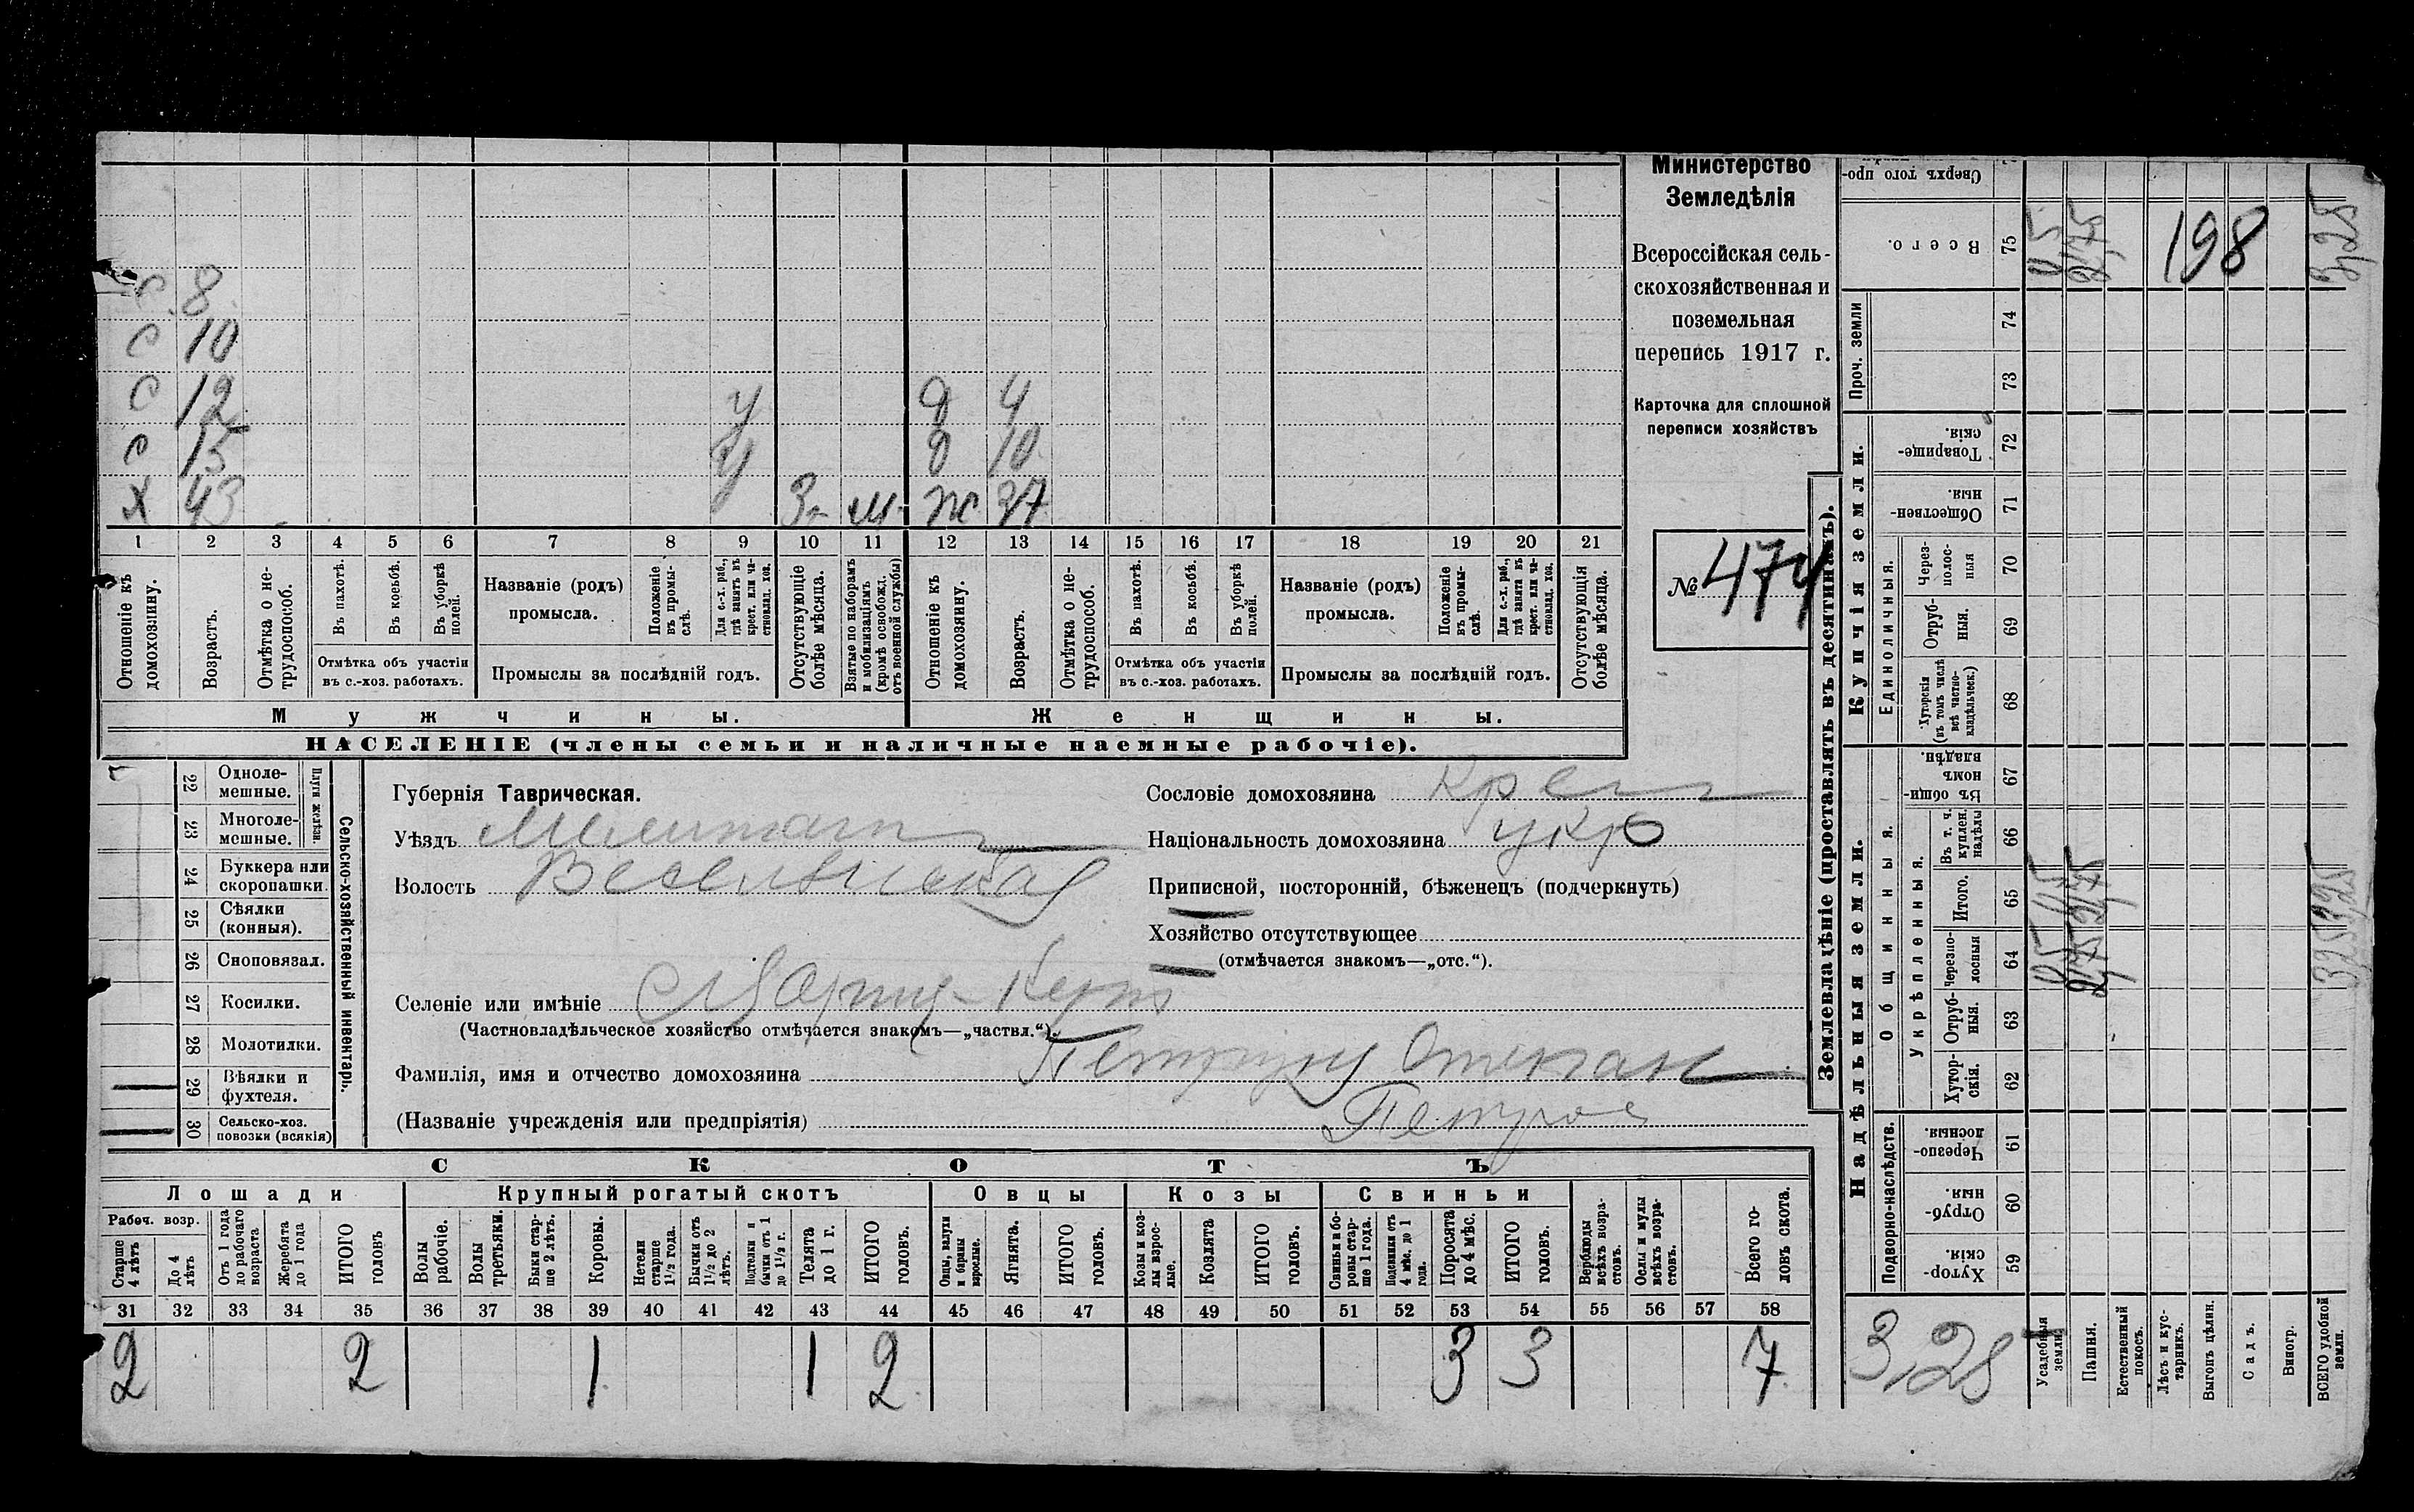 Министерство
Земледѣлія
Всероссійская сель-
скохозяйственная и
поземельная
перепись 1917 г.
Карточка для сплошной
переписи хозяйствъ
№ 474
С 8
С 10
С 12 У д 4
С 15 У д 10
Х 43 У 3 м ж 37
1 2 3 4 5 6 7 8 9 10 11 12 13 14 15 16 17 18 19 20 21
Отношеніе къ домохозяину.
Возрастъ.
Отмѣтка о не-трудоспособ.
Въ пахотѣ.
Въ косьбѣ.
Въ уборкѣ полей.
Отмѣтка объ участіи въ с.-хоз. работахъ.
Названіе (родъ) промысла.
Положеніе въ промы-слѣ.
Для с.-х. раб., гдѣ занятъ въ крест. или ча-стновлад. хоз.
Промыслы за послѣдній годъ.
Отсутствующіе болѣе мѣсяца.
Взятые по наборамъ и мобилизаціямъ (кромѣ освобожд. отъ военной службы)
Отношеніе къ домохозяину.
Возрастъ.
Отмѣтка о не-трудоспособ.
Въ пахотѣ.
Въ косьбѣ.
Въ уборкѣ полей.
Отмѣтка объ участіи въ с.-хоз. работахъ.
Названіе (родъ) промысла.
Положеніе въ промы-слѣ.
Для с.-х. раб., гдѣ занята въ крест. или ча-стновлад. хоз.
Промыслы за послѣдній годъ.
Отсутствующія болѣе мѣсяца.
Мужчины. Женщины.
НАСЕЛЕНІЕ (члены семьи и наличные наемные рабочіе).
Сельско-хозяйственный инвентарь.
Плуги желѣзн.
22 Одноле-мешные.
23 Многоле-мешные.
24 Буккера или скоропашки.
25 Сѣялки (конныя).
26 Сноповязал.
27 Косилки.
28 Молотилки.
29 Вѣялки и фухтеля.
30 Сельско-хоз. повозки (всякія)
Губернія Таврическая.
Уѣздъ Мелитоп
Волость Веселовская
Селеніе или имѣніе
(Частновладѣльческое хозяйство отмѣчается знакомъ—„частвл.“).
Фамилія, имя и отчество домохозяина Степан
(Названіе учрежденія или предпріятія) Петров
Сословіе домохозяина Крест
Національность домохозяина укр
Приписной, посторонній, бѣженецъ (подчеркнуть)
Хозяйство отсутствующее
(отмѣчается знакомъ—„отс.“).
СКОТЪ
Лошади Крупный рогатый скотъ Овцы Козы Свиньи
Рабоч. возр.
Старше 4 лѣтъ
До 4 лѣтъ
Отъ 1 года до рабочаго возраста
Жеребята до 1 года
ИТОГО головъ
Волы рабочіе.
Волы третьяки.
Быки стар-ше 2 лѣтъ.
Коровы.
Нетели старше 1½ года.
Бычки отъ 1½ до 2 лѣтъ.
Подтелки и бычки отъ 1 до 1½ г.
Телята до 1 г.
ИТОГО головъ.
Овцы, валухи и бараны взрослые.
Ягнята.
ИТОГО головъ.
Козы и коз-лы взрос-лые.
Козлята
ИТОГО головъ.
Свиньи и бо-ровы стар-ше 1 года.
Подсвинки отъ 4 мѣс. до 1 года.
Поросята до 4 мѣс.
ИТОГО головъ.
Верблюды всѣхъ возра-стовъ.
Ослы и мулы всѣхъ возра-стовъ.
Всего го-ловъ скота.
31 32 33 34 35 36 37 38 39 40 41 42 43 44 45 46 47 48 49 50 51 52 53 54 55 56 57 58
2 2 1 1 2 3 3 7
Землевладѣніе (проставлять въ десятинахъ).
Сверхъ того про-
Всего. 75
0,5 2,75 198 3,25
Проч. земли 74 73
Купчія земли.
Товарище-скія. 72
Обществен-ныя. 71
Единоличныя.
Через-полос-ныя 70
Отруб-ныя. 69
Хуторскія (въ томъ числѣ всѣ частно-владѣльческ.) 68
Надѣльныя земли.
Въ общи-номъ владѣн. 67
Общинныя.
Укрѣпленныя.
Въ т. ч. куплен. надѣлы 66
Итого. 65 0,5 2,75 3,25
Черезпо-лосныя 64 0,5 2,75 3,25
Отруб-ныя. 63
Хутор-скія. 62
Подворно-наслѣдств.
Черезпо-лосныя. 61
Отруб-ныя. 60
Хутор-скія. 59
3,28
Усадебная земля.
Пашня.
Естественный покосъ.
Лѣсъ и кус-тарникъ.
Выгонъ цѣлин.
Садъ.
Виногр.
ВСЕГО удобной земли.